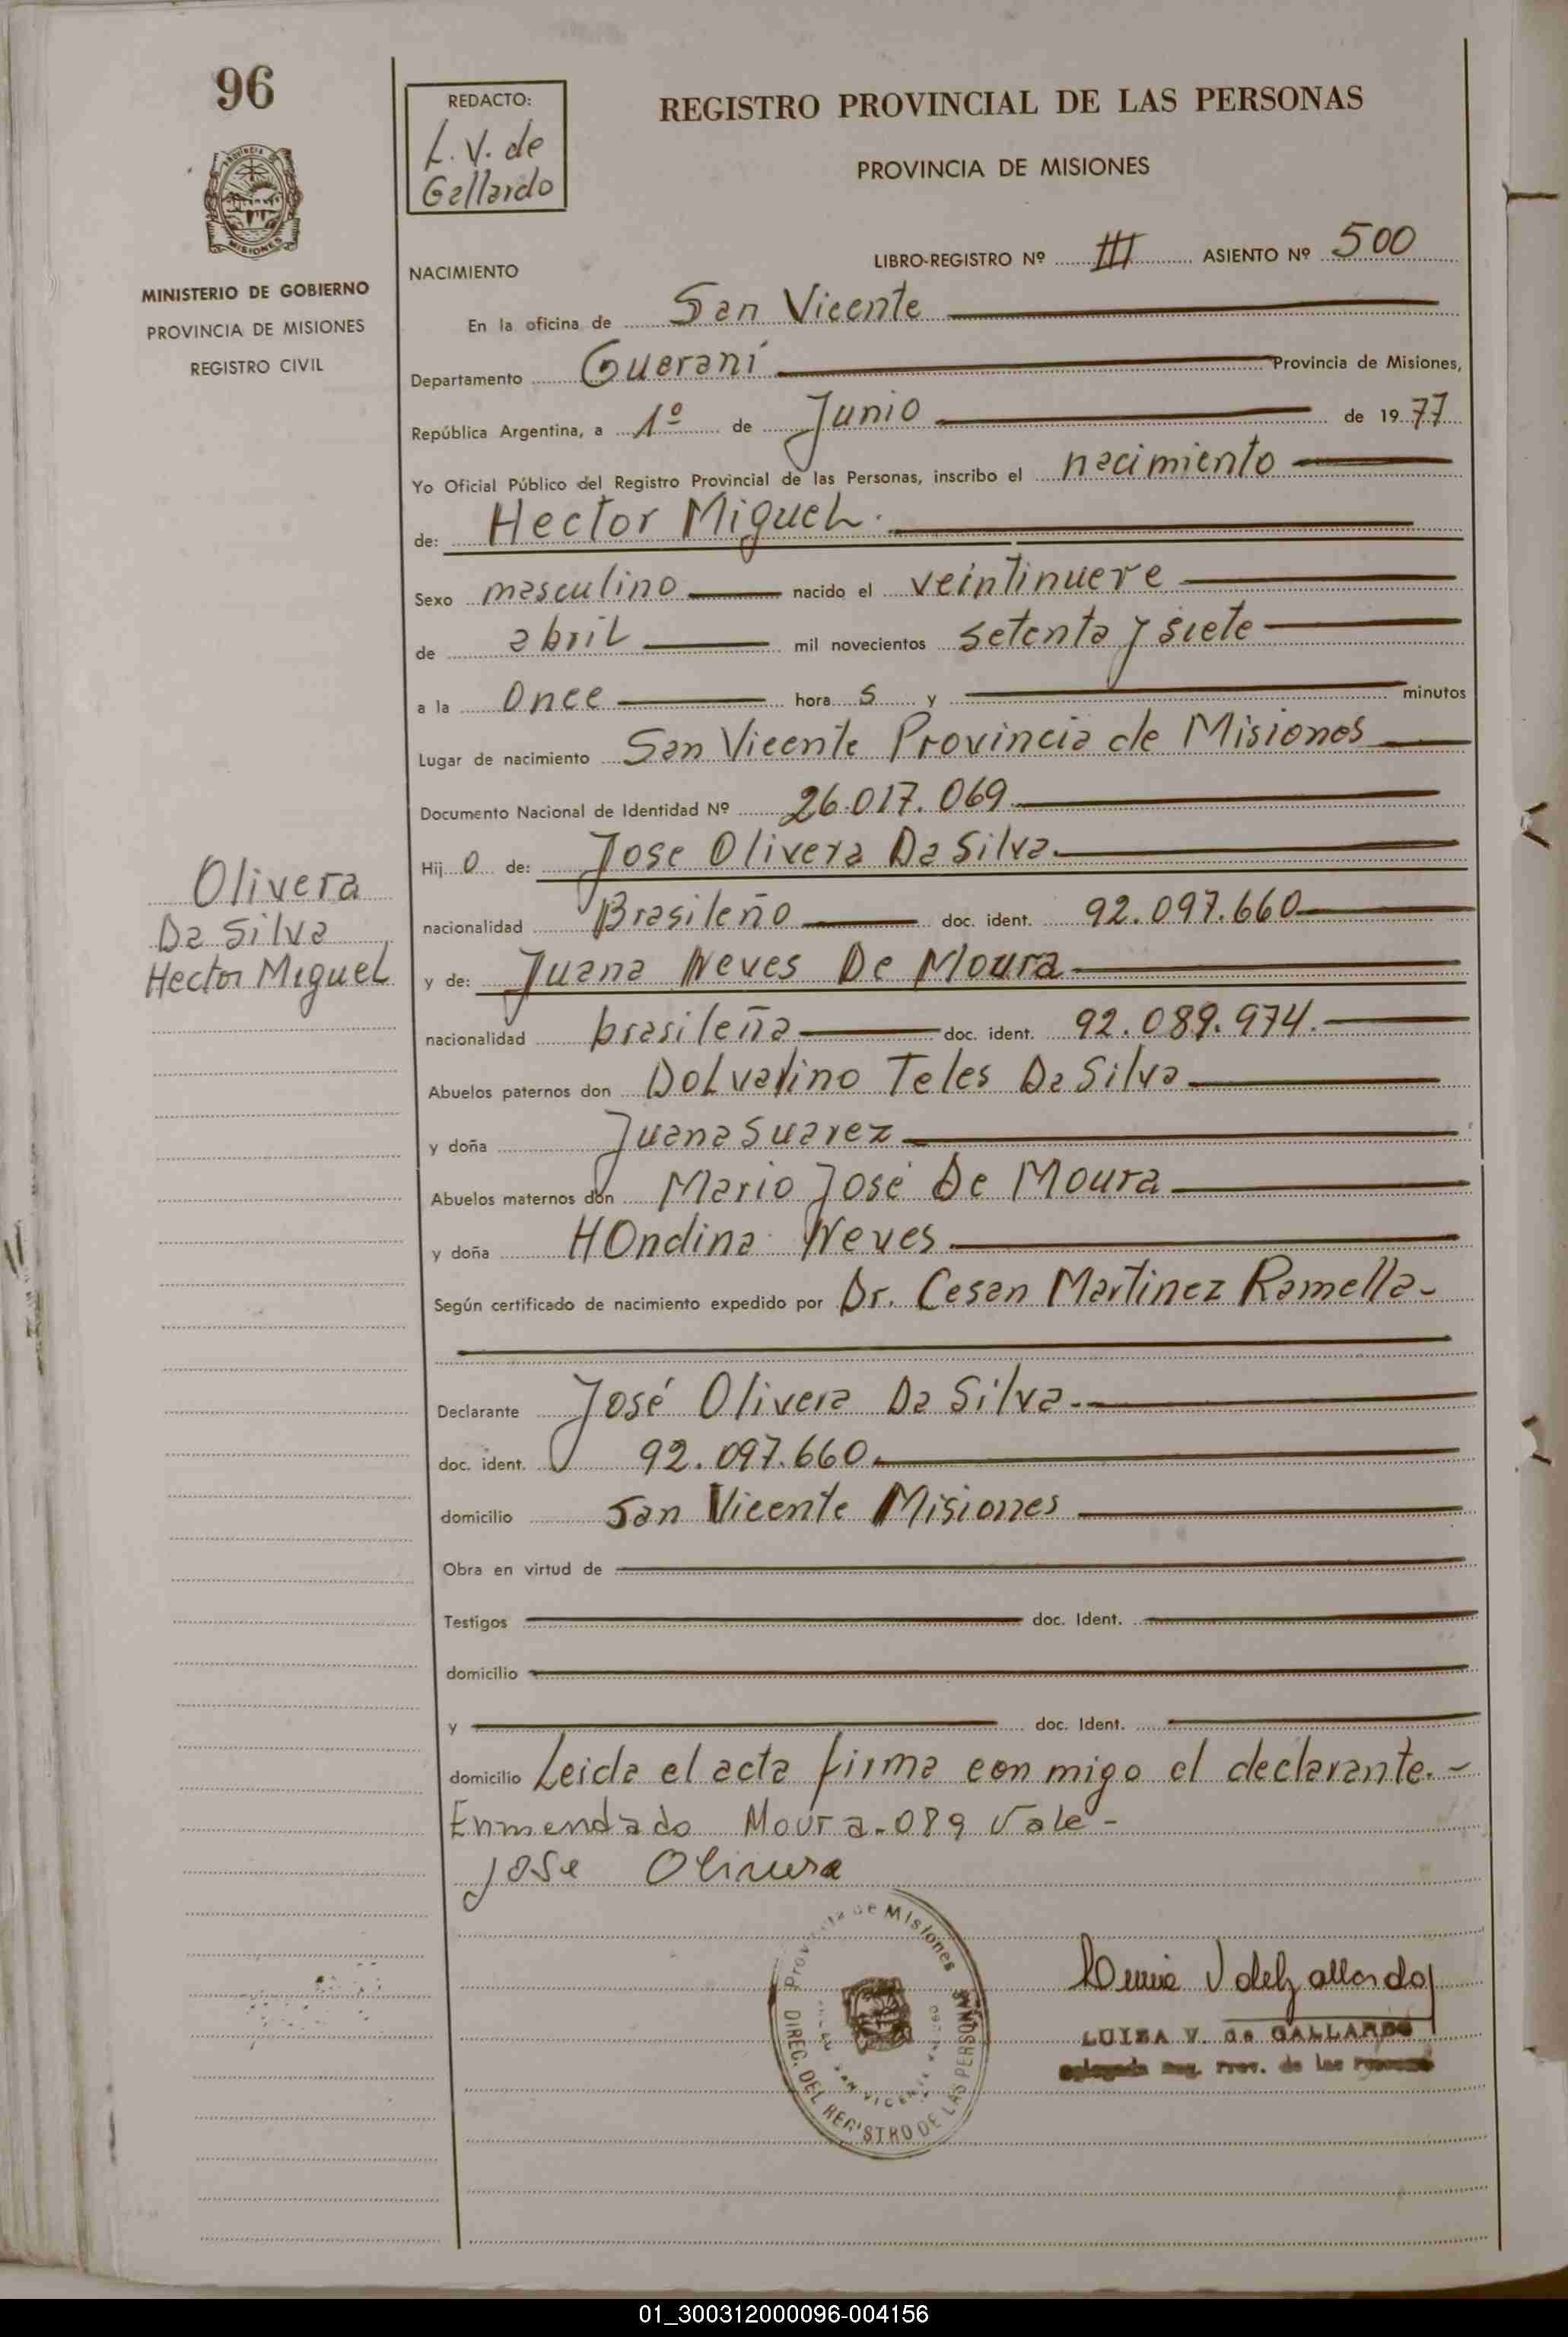 96
REDACTO:
L. V. de
Gallardo
REGISTRO PROVINCIAL DE LAS PERSONAS
PROVINCIA DE MISIONES
MISIONES
MINISTERIO DE GOBIERNO
PROVINCIA DE MISIONES
REGISTRO CIVIL
NACIMIENTO
LIBRO-REGISTRO Nº III ASIENTO Nº 500
En la oficina de San Vicente
Departamento Guaraní Provincia de Misiones,
República Argentina, a 1º de Junio de 1977
Yo Oficial Público del Registro Provincial de las Personas, inscribo el nacimiento
de: Hector Miguel.
Sexo masculino nacido el veintinueve
de abril mil novecientos setenta y siete
a la once hora s y minutos
Lugar de nacimiento San Vicente Provincia de Misiones
Documento Nacional de Identidad Nº 26.017.069
Hij o de: Jose Olivera Da Silva
nacionalidad Brasileño doc. ident. 92.097.660
y de: Juana Neves De Moura
nacionalidad brasileña doc. ident. 92.089.974.
Abuelos paternos don Dolvalino Teles Da Silva
y doña Juana Suarez
Abuelos maternos don Mario José De Moura
y doña HOndina Neves
Según certificado de nacimiento expedido por Dr. Cesan Martinez Ramella-
Declarante José Olivera Da Silva.
doc. ident. 92.097.660
domicilio San Vicente Misiones
Obra en virtud de
Testigos doc. Ident.
domicilio
y doc. Ident.
domicilio Leida el acta firma con migo el declarante.-
Enmendado Moura-089 Vale-
Jose Olivera
Olivera
Da Silva
Hector Miguel
Provincia de Misiones
DIREC. DEL REGISTRO DE LAS PERSONAS
SAN VICENTE
LUISA V. de GALLARDO
Delegada Reg. Prov. de las Personas
01_300312000096-004156